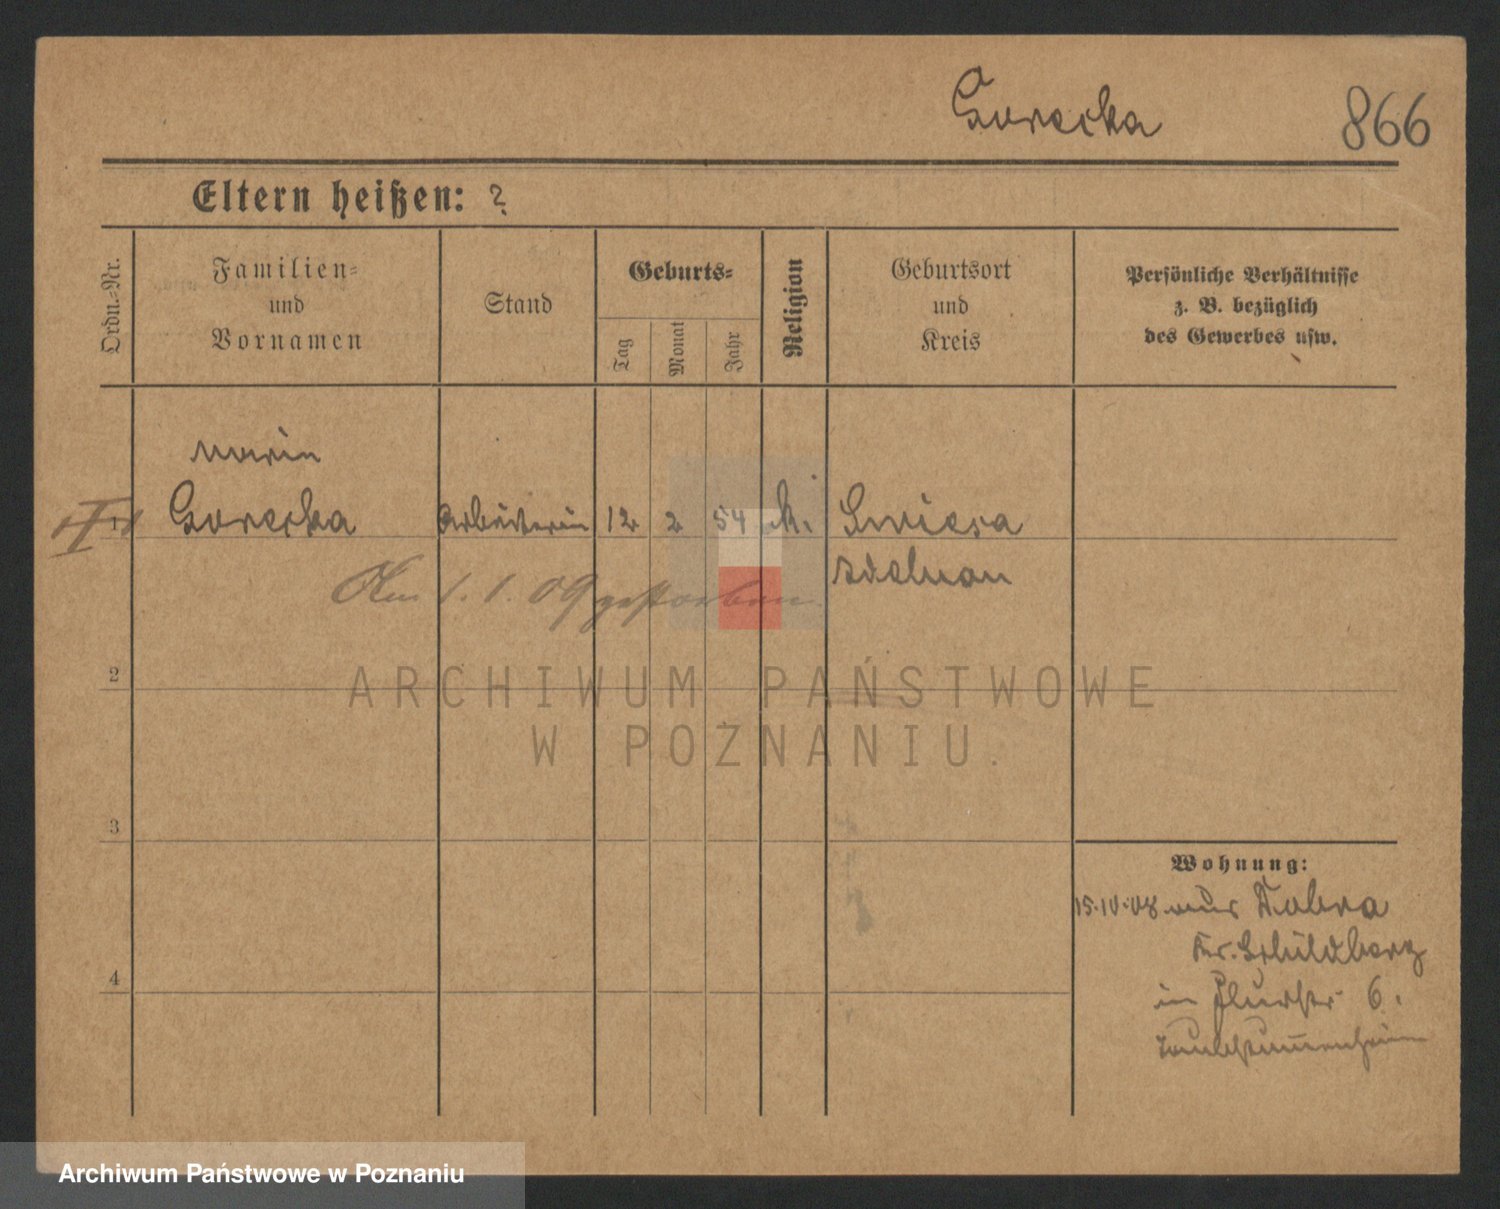 Gorecka 866
Eltern heißen: ?
Ordn.-Nr.
Familien-
und
Vornamen
Stand
Geburts-
Tag
Monat
Jahr
Religion
Geburtsort
und
Kreis
Persönliche Verhältnisse
z. B. bezüglich
des Gewerbes usw.
Maria
1 Gorecka Arbeiterin 12 2 54 k.
Adelnau
Am 1. 1. 09 gestorben
2
ARCHIWUM PAŃSTWOWE
W POZNANIU.
3
Wohnung:
15.10.08 aus Kobra
Kr. Schildberg
4
in Flurstr 6.
Taubstummenheim
Archiwum Państwowe w Poznaniu